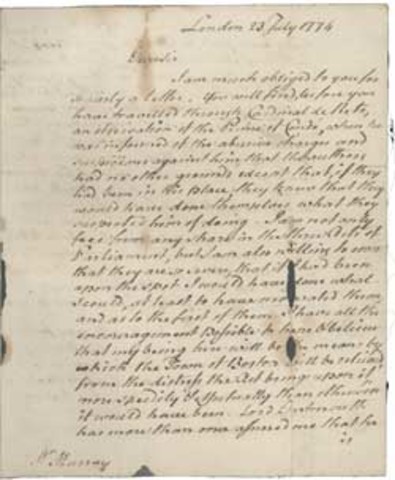 London 23 July 1774
Dear Sir
I am much obliged to you for
so early a letter. You will find, before you
have travelled through Cardinal de Retz,
an observation of the Prince of Conde, when he
was informed of the abusive charges and
suspicions against him that the authors
had no other grounds except that if they
had been in his Place they knew that they
would have done themselves what they
suspected him of doing. I am not only
free from any share in the three Acts of
Parliament, but I am also willing to own
that they are so severe, that if I had been
upon the spot I would have done what
I could, at least to have moderated them
and as to the first of them I have all the
encouragement Possible to hope & believe
that my being here will be the means by
which the Town of Boston will be relieved
from the distress the Act brings upon it
more speedily & effectually than otherwise
it would have been. Lord Dartmouth
has more than once assured me that he
is
Mr. Murray